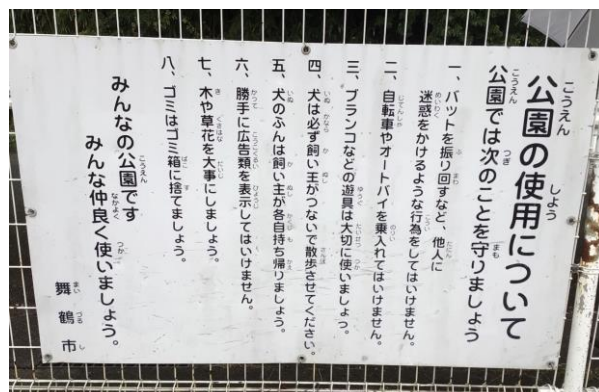 公園の使用について
公園では次のことを守りましょう
一、バットを振り回すなど、他人に
迷惑をかけるような行為をしてはいけません。
二、自転車やオートバイを乗入れてはいけません。
三、ブランコなどの遊具は大切に使いましょう。
四、犬は必ず飼い主がつないで散歩させてください。
五、犬のふんは飼い主が各自持ち帰りましょう。
六、勝手に広告類を表示してはいけません。
七、木や草花を大事にしましょう。
八、ゴミはゴミ箱に捨てましょう。
みんなの公園です
みんな仲良く使いましょう。
舞鶴市